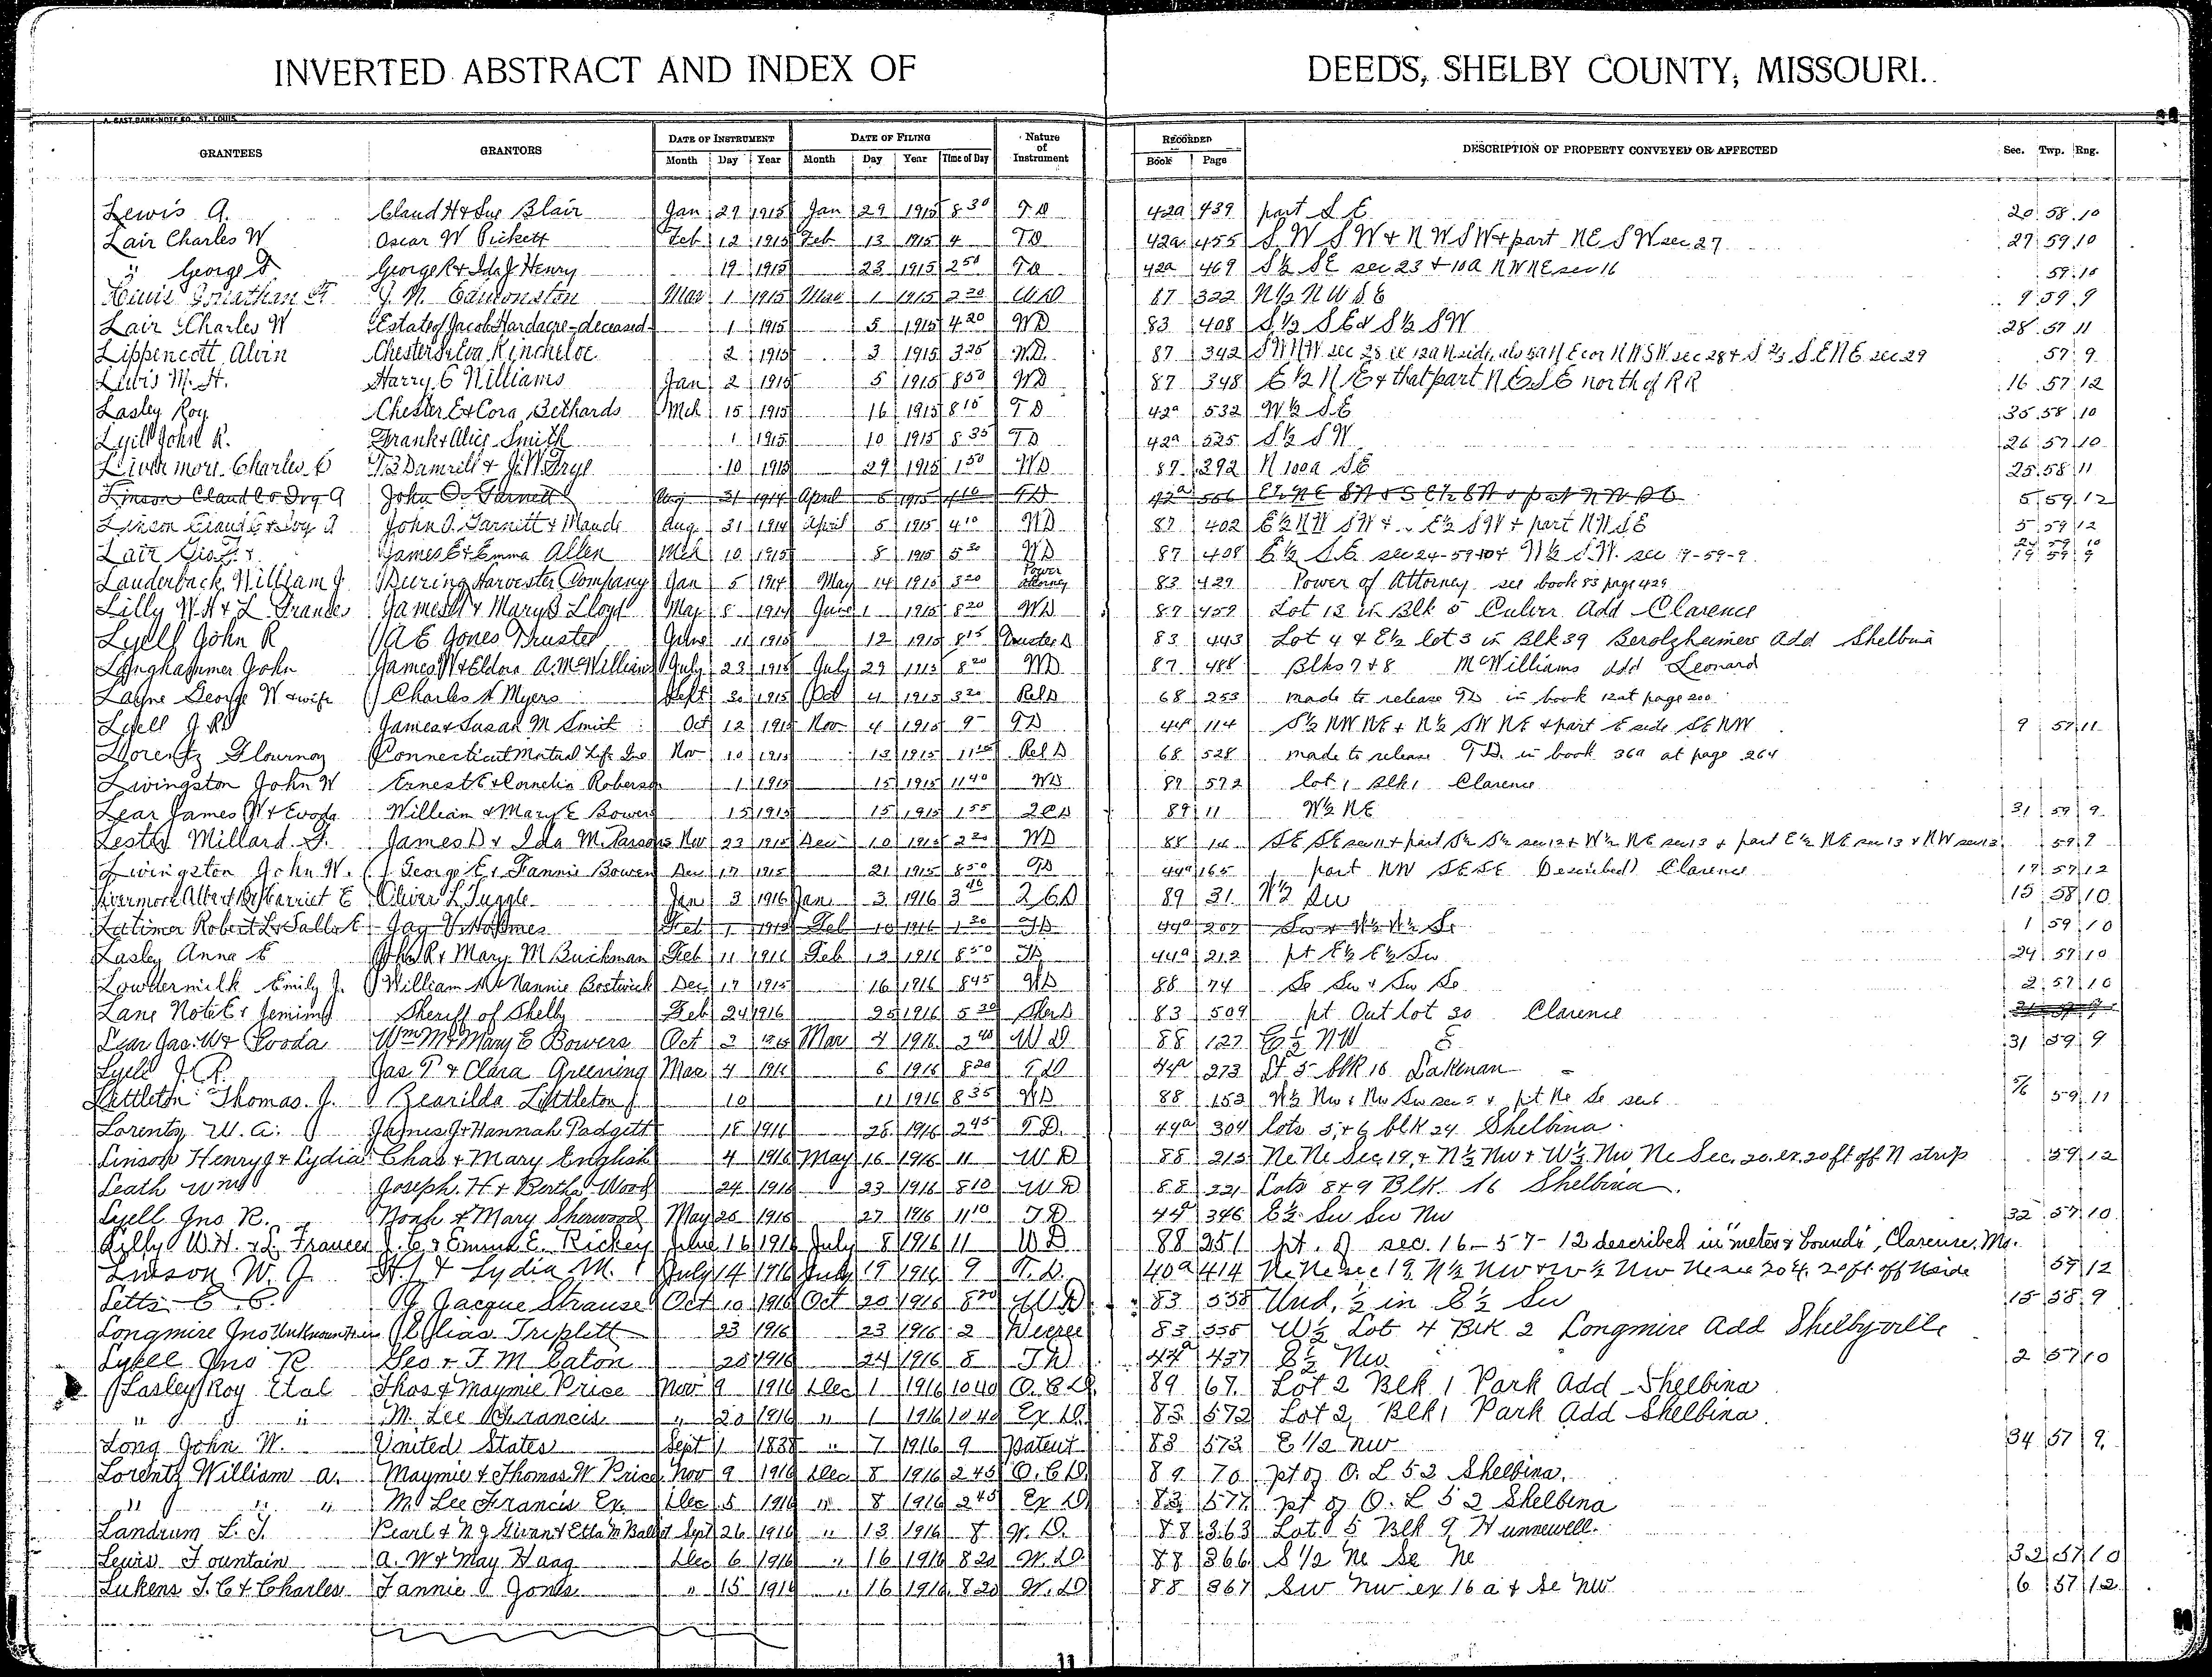 INVERTED ABSTRACT AND INDEX OF DEEDS, SHELBY COUNTY, MISSOURI.
A. EAST BANK NOTE CO., ST. LOUIS
GRANTEES GRANTORS DATE OF INSTRUMENT DATE OF FILING Nature of Instrument RECORDED DESCRIPTION OF PROPERTY CONVEYED OR AFFECTED Sec. Twp. Rng.
Month Day Year Month Day Year Time of Day Book Page
Lewis A. Claud H & Sue Blair Jan 29 1915 Jan 29 1915 8 30 T D 42a 439 part S E 20 58 10
Lair Charles W Oscar W Pickett Feb 12 1915 Feb 13 1915 4 T D 42a 455 S W S W & N W S W & part NE S W sec 27 27 59 10
" George T. George R & Ida J Henry 19 1915 23 1915 2 50 T D 42a 469 S ½ SE sec 23 & 10a NW NE sec 16 59 10
Lewis Jonathan J. M. Edmonston Mar 1 1915 Mar 1 1915 2 20 W D 87 322 N ½ N W S E 9 59 9
Lair Charles W Estate of Jacob Hardacre - deceased 1 1915 5 1915 4 20 W D 83 408 S ½ S E & S ½ S W 28 57 11
Lippencott Alvin Chester & Eva Kincheloe 2 1915 3 1915 3 25 W.D. 87 342 S W N W sec 28 ex 12a N side, als 5a N E cor N W S W sec 28 & S 2/3 S E N E sec 29 57 9
Lewis M. H. Harry C Williams Jan 2 1915 5 1915 8 50 W D 87 348 E ½ N E & that part N E S E north of R R 16 57 12
Lasley Roy Chester E & Cora Bethards Mch 15 1915 16 1915 8 15 T D 42a 532 W ½ S E 35 58 10
Lyell John R. Frank & Alice Smith 1 1915 10 1915 8 35 T D 42a 525 S ½ S W 26 57 10
Livermore Charles E T. B Damrell & J. W. Frye 10 1915 29 1915 1 50 W D 87 392 N 100a S E 25 58 11
Linson Claud C & Ivy A John O. Garnett Aug 31 1914 April 5 1915 4 10 T D 42a 566 5 59 12
Linson Claud C & Ivy A John O. Garnett & Maude Aug 31 1914 April 5 1915 4 10 W D 87 402 E ½ N W S W & E ½ S W & part N W S E 5 59 12
Lair Geo. T. & James E & Emma Allen Mch 10 1915 8 1915 5 30 W D 87 408 E ½ S E sec 24-59-10 & W ½ S.W. sec 19-59-9 24 59 10 19 59 9
Lauderback William J Deering Harvester Company Jan 5 1914 May 14 1915 3 20 Power Attorney 83 429 Power of Attorney see book 83 page 429
Lilly W. H & L Frances James W & Mary B Lloyd May 8 1914 June 1 1915 8 20 W D 87 459 Lot 13 in Blk 5 Culver Add Clarence
Lyell John R A E Jones Trustee June 11 1915 12 1915 8 15 Trustee D 83 443 Lot 4 & E½ lot 3 in Blk 39 Berolzheimers Add Shelbina
Langhammer John James W & Eldora A. McWilliams July 23 1915 July 29 1915 8 20 W D 87 488 Blks 7 & 8 McWilliams Add Leonard
Layne George W & wife Charles N Myers Sept 30 1915 Oct 4 1915 3 20 Rel D 68 253 made to release T D in book 12 at page 200
Lyell J. R James & Susan M Smit Oct 12 1915 Nov 4 1915 9 T D 44a 114 S½ NW NE & N½ SW NE & part E side SE NW 9 57 11
Lorentz Flournoy Connecticut Mutual Life Ins Nov 10 1915 13 1915 11 Rel D 68 528 made to release T D. in book 36a at page 264
Livingston John W Ernest E & Cornelia Roberson 1 1915 15 1915 11 40 W D 87 572 lot 1 Blk 1 Clarence
Lear James W & Evoda William & Mary E Bowers 15 1915 15 1915 1 55 Q C D 89 11 W½ NE 31 59 9
Lester Millard F. James D & Ida M. Parsons Nov 23 1915 Dec 10 1915 2 20 W D 88 14 SE SE sec 11 & part S½ S½ sec 12 & W½ NE sec 13 & part E½ NE sec 13 & NW sec 13 59 9
Livingston John W. George E & Fannie Bowen Dec 17 1915 21 1915 8 50 T D 44a 165 part NW SE SE (Described) Clarence 17 57 12
Livermore Albert B & Harriet E Oliver L Tuggle Jan 3 1916 Jan 3 1916 3 40 Q C D 89 31 W½ SW 15 58 10
Latimer Robert L & Sallie E Jay V Holmes Feb 1 1916 Feb 10 1916 1 30 T D 44a 207 1 59 10
Lasley Anna E John R & Mary M Buckman Feb 11 1916 Feb 12 1916 8 50 T D 44a 212 pt E½ E½ SW 24 57 10
Lowdermilk Emily J. William M & Nannie Bostwick Dec 17 1915 16 1916 8 45 W D 88 74 Se Sw & Sw Se 2 57 10
Lane Note E & Jemima Sheriff of Shelby Feb 24 1916 25 1916 5 30 Sher D 83 509 pt Out lot 30 Clarence
Lear Jas. W & Evoda Wm M & Mary E Bowers Oct 2 1915 Mar 4 1916 2 40 W D 88 127 E ½ NW 31 59 9
Lyell J. R. Jas P & Clara Greening Mar 4 1916 6 1916 8 20 T D 44a 273 Lt 5 blk 16 Lakenan
Littleton Thomas J. Rearilda Littleton 10 11 1916 8 35 W D 88 152 W½ Nw & Nw Sw sec 5 & pt Ne Se sec 6 5/6 59 11
Lorentz W. A. James J & Hannah Padgett 18 1916 28 1916 2 45 T D. 44a 304 lots 5 & 6 blk 24 Shelbina
Linson Henry J & Lydia Chas & Mary English 4 1916 May 16 1916 11 W. D 88 213 Ne Ne Sec. 19, & N½ Nw & W½ Nw Ne Sec. 20. ex. 20 ft off N strip 59 12
Leath Wm Joseph. H & Bertha Wood 24 1916 23 1916 8 10 W D 88 221 Lots 8 & 9 Blk. 16 Shelbina.
Lyell Jno R. Noah & Mary Sherwood May 26 1916 27 1916 11 10 T D 44a 346 E½ Sw Sw Nw 32 57 10
Lilly W. H. & L. Frances J. C & Emma E. Rickey June 16 1916 July 8 1916 11 W D 88 251 pt. of sec. 16-57-12 described in "metes & bounds", Clarence, Mo.
Linson W. J. H. J & Lydia M. July 14 1916 July 19 1916 9 T. D. 40a 414 Ne Ne sec 19 N½ NW & W½ NW Ne sec 20 ex. 20 ft off N side 59 12
Letts C. C. J. Jacque Strause Oct 10 1916 Oct 20 1916 8 20 W D 83 558 Und. ½ in E½ Sw 15 58 9
Longmire Jno Unknown Heirs Elias Triplett 23 1916 23 1916 2 Decree 83 558 W½ Lot 4 Blk 2 Longmire Add Shelbyville
Lyell Jno R Geo & F M Eaton 20 1916 24 1916 8 T D 44a 437 E½ Nw 2 57 10
Lasley Roy Et al Thos & Maymie Price Nov 9 1916 Dec 1 1916 10 40 Q. C D. 89 67 Lot 2 Blk 1 Park Add Shelbina
" " " M. Lee Francis " 20 1916 " 1 1916 10 40 Ex D. 83 572 Lot 2, Blk 1 Park Add Shelbina.
Long John W. United States Sept 1 1838 " 7 1916 9 Patent 83 573 E 1/2 NW 34 57 9
Lorentz William A. Maymie & Thomas W Price Nov 9 1916 Dec 8 1916 2 45 Q. C D. 89 70 pt of O. L 52 Shelbina.
" " " M Lee Francis Ex Dec 5 1916 " 8 1916 2 45 Ex D 83 577 pt of O. L 52 Shelbina
Landrum L. T. Pearl & N J Givan & Etta M Ballot Sept 26 1916 " 13 1916 8 W. D. 88 363 Lot 5 Blk 9 Hunnewell.
Lewis Fountain A. W & May Haag Dec 6 1916 " 16 1916 8 20 W. D. 88 366 S 1/2 Ne Se Ne 32 57 10
Lukens T. C & Charles Fannie Jones " 15 1916 " 16 1916 8 20 W. D 88 367 Sw Nw ex 16 a & Se Nw 6 57 12
11